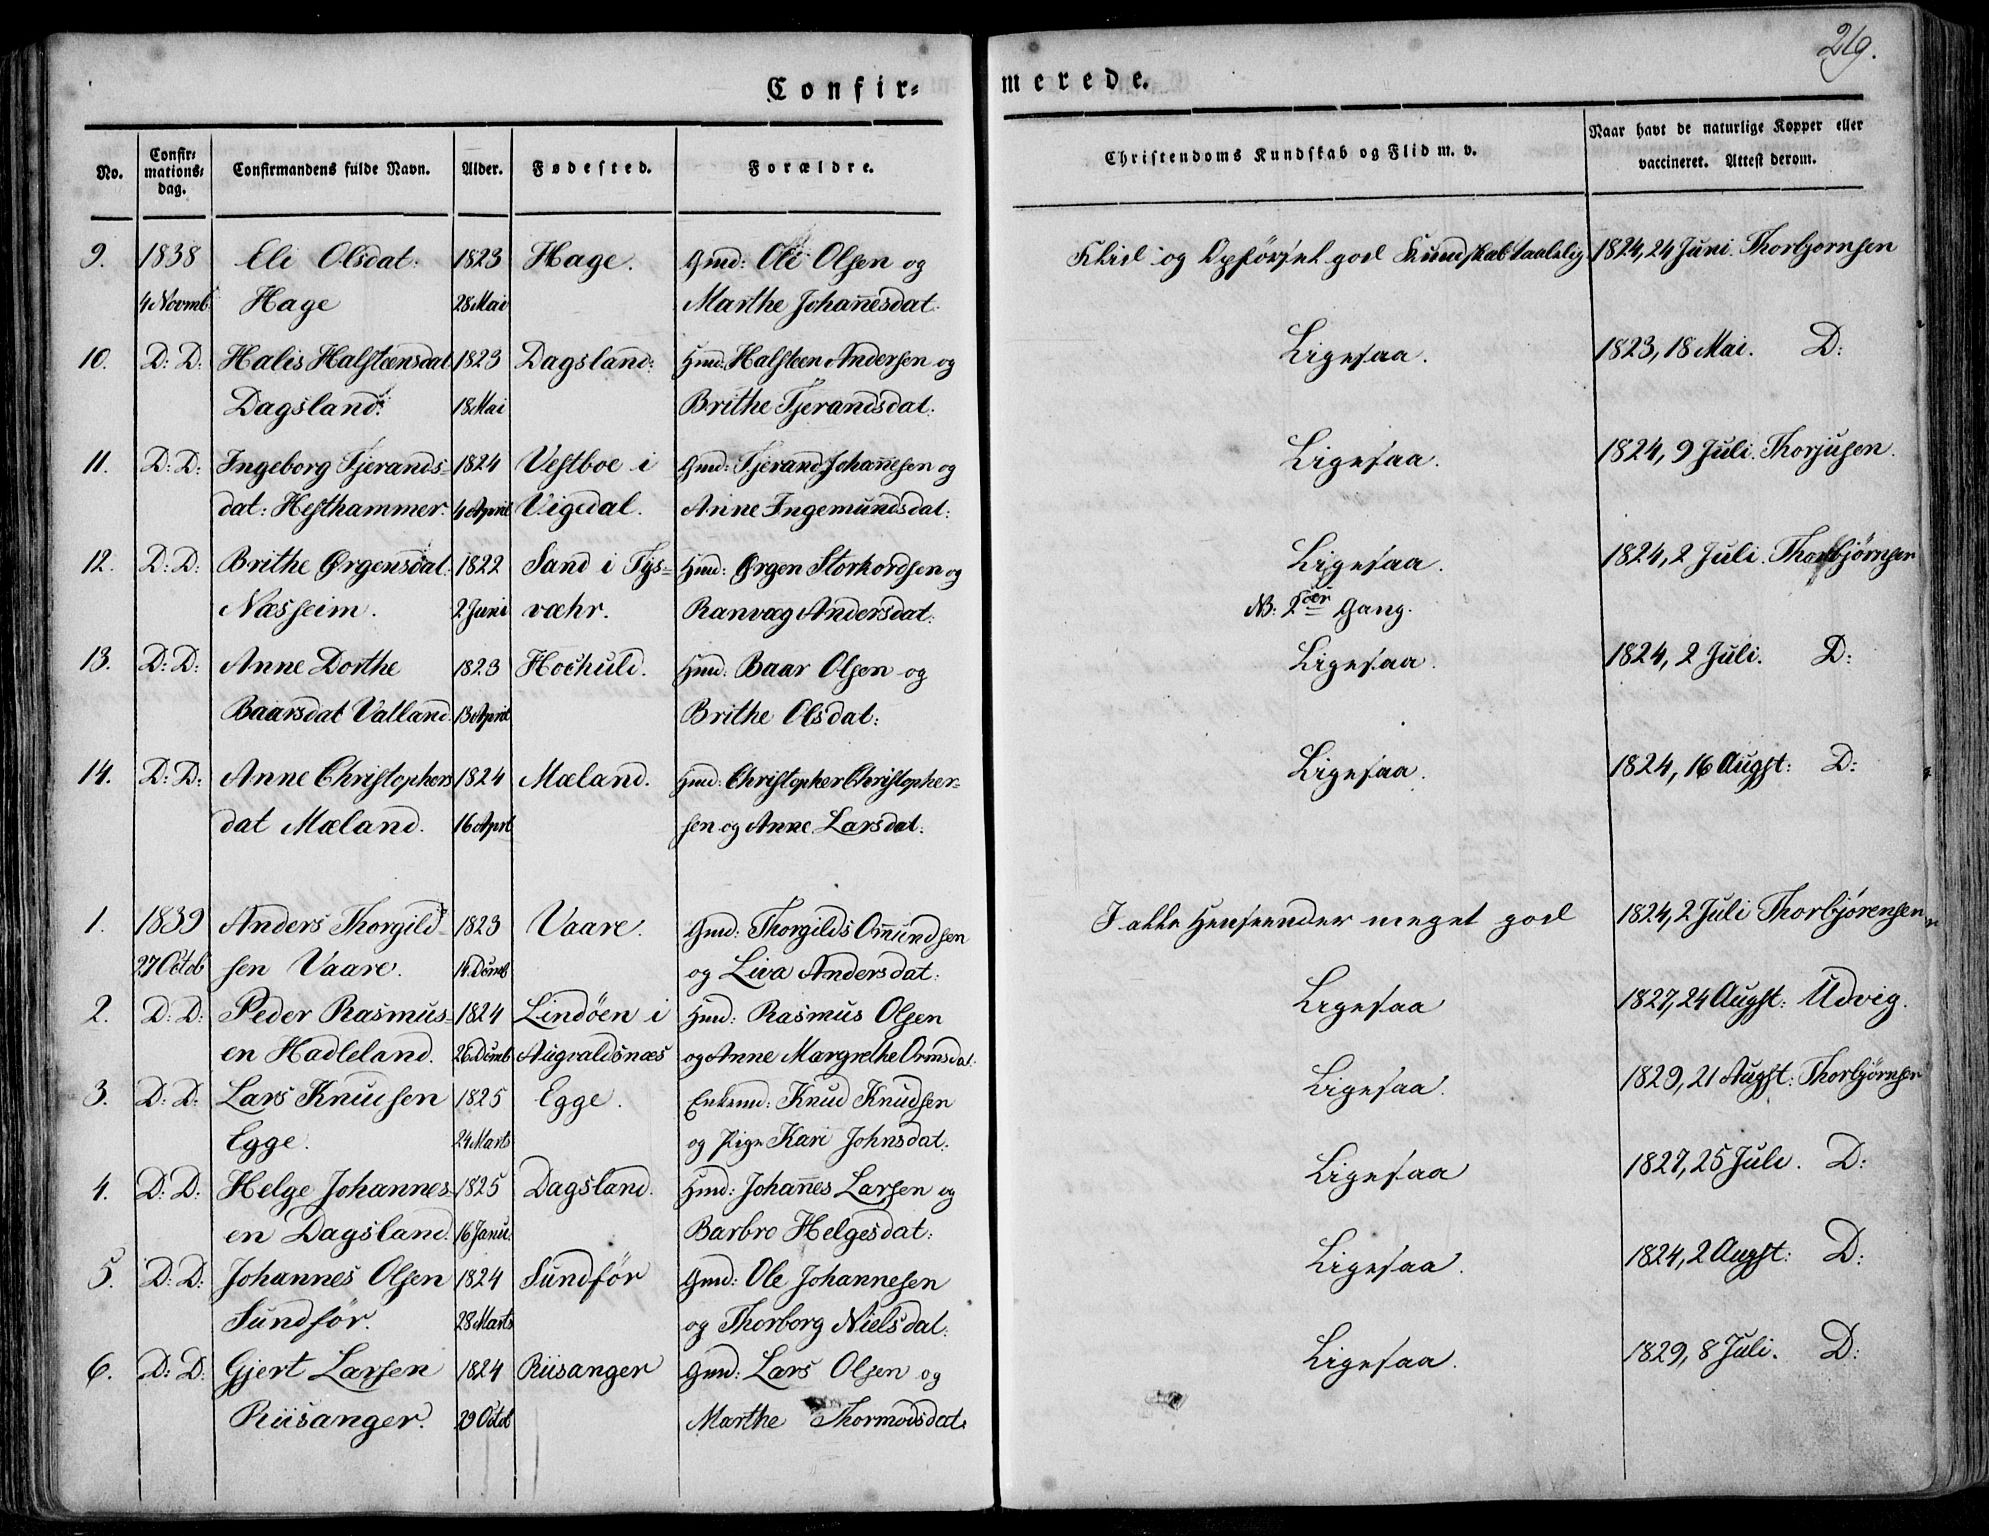 219.
Confir=
merede.
No.
Confir=
mations=
dag.
Confirmandens fulde Navn.
Alder.
Fødested.
Forældre.
Christendoms Kundskab og Flid m. v.
Naar havt de naturlige Kopper eller
vaccineret. Attest derom.
9. 1838 Eli Olsdat: 1823 Hage. Gmd: Ole Olsen og Flid og Opförsel god Kundskab taalelig 1824, 24 Juni. Thorbjornsen
4 Novmb Hage 28 Mai Marthe Johañesdat:
10. D: D: Halis Halsteensdat 1823 Dagsland: Hmd: Halsteen Andersen og Ligesaa. 1823, 18 Mai. D:
Dagsland: 18 Mai Brithe Tjerandsdat:
11. D: D: Ingeborg Tjerands= 1824 Vestboe i Gmd: Tjerand Johañesen og Ligesaa. 1824, 9 Juli. Thorjusen.
dat: Hesthammer. 4 April Vigedal. Anne Ingemundsdat:
12. D: D: Brithe Ørgensdat 1822 Sand i Tys= Hmd: Ørgen Storkordsen og Ligesaa. 1824, 2 Juli. Thorbjørnsen
Næsheim. 2 Juni væhr. Ranvæg Andersdat: NB: 2den Gang.
13. D: D: Anne Dorthe 1823 Hochuld. Hmd: Baar Olsen og Ligesaa. 1824, 2 Juli. D:
Baarsdat Valland. 13 April Brithe Olsdat:
14. D: D: Anne Christophers 1824 Mæland. Hmd: Christopher Christopher= Ligesaa. 1824, 16 Augst: D:
dat Mæland. 16 April sen og Anne Larsdat:
1. 1839 Anders Thorgild= 1823 Vaare. Gmd: Thorgilds Omundsen I alle Henseender meget god 1824, 2 Juli Thorbjørensen
27 Octob sen Vaare. 14 Dcmb og Liva Andersdat:
2. D: D: Peder Rasmus= 1824 Lindöen i Hmd: Rasmus Olsen Ligesaa 1827, 24 Augst: Udvig.
en Hadleland. 26 Dcmb Augvaldsnæs og Anne Margrethe Ormsdat:
3. D: D: Lars Knudsen 1825 Egge. Enkemd: Knud Knudsen Ligesaa. 1829, 21 Augst: Thorbjørnsen
Egge. 24 Marts og Pige Kari Johnsdat:
4. D: D: Helge Johannes= 1825 Dagsland. Hmd: Johañes Larsen og Ligesaa 1827, 25 Juli. D:
en Dagsland. 16 Janu. Barbro Helgesdat:
5. D: D: Johannes Olsen 1824 Sundför Gmd: Ole Johannesen Ligesaa. 1824, 2 Augst: D:
Sundför. 28 Marts og Thorborg Nielsdat:
6. D: D: Gjert Larsen 1824 Riisanger Gmd: Lars Olsen og Ligesaa. 1829, 8 Juli. D:
Riisanger. 29 Octob Marthe Thormodsdat: